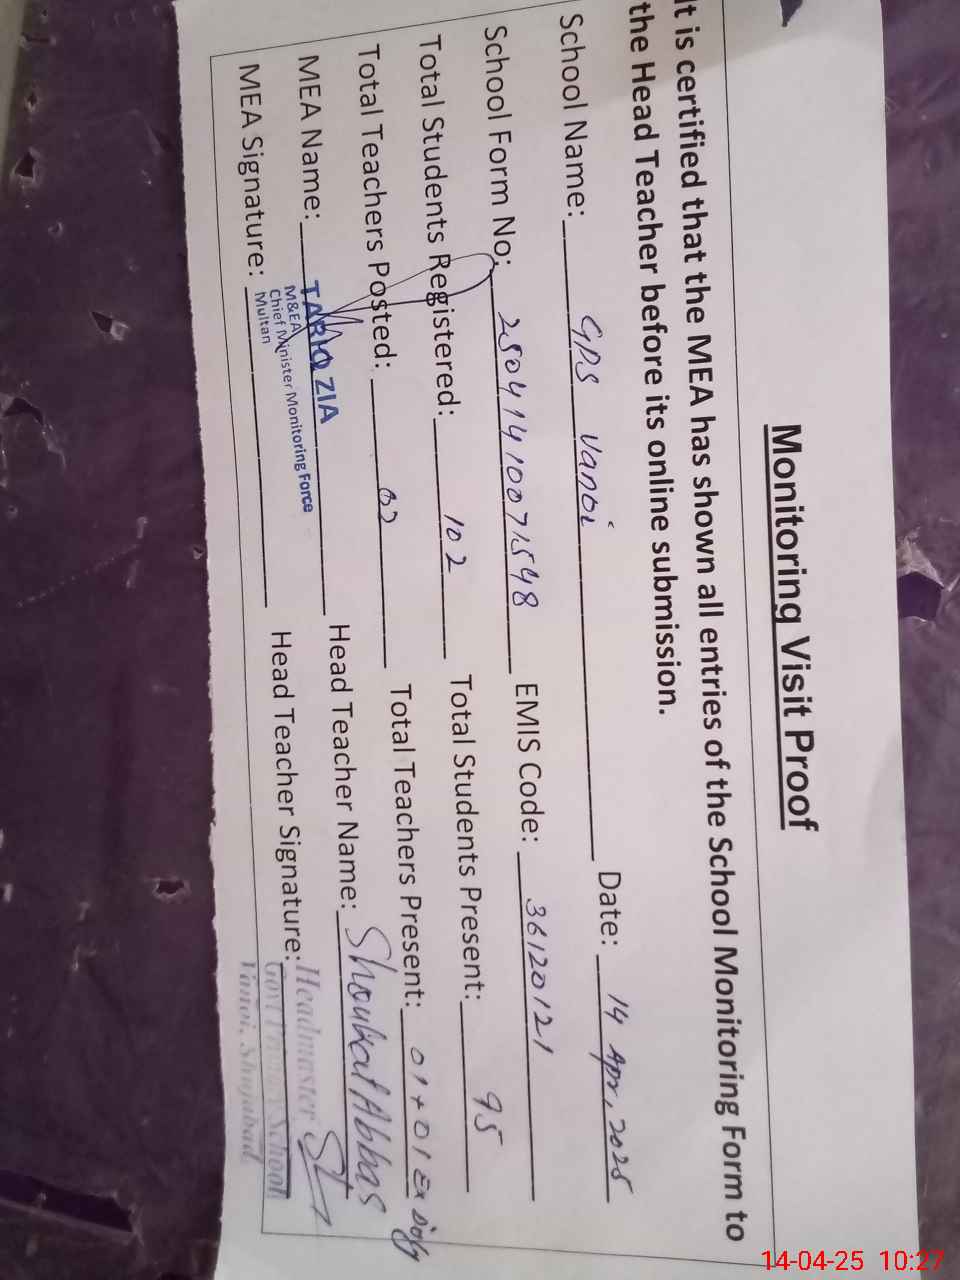 Monitoring Visit Proof
It is certified that the MEA has shown all entries of the School Monitoring Form to
the Head Teacher before its online submission.
School Name: GPS Vanoi Date: 14 Apr, 2025
School Form No: 25041410071548 EMIS Code: 36120121
Total Students Registered: 102 Total Students Present: 95
Total Teachers Posted: 02 Total Teachers Present: 01+01 Ex Doly
MEA Name: TARIQ ZIA Head Teacher Name: Shoukat Abbas
M&EA
Chief Minister Monitoring Force
Multan
MEA Signature: Head Teacher Signature:
Headmaster
Govt Primary School
Vanoi, Shujabad
14-04-25 10:27